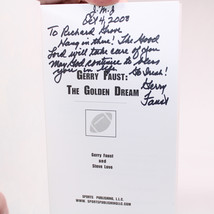 J.M.J
Oct 4, 2008
To Richard Grove
Hang in there! The Good
Lord will take care of you
May God continue to bless
you in life. Go Irish!
Gerry
Faust
GERRY FAUST:
THE GOLDEN DREAM
Gerry Faust
and
Steve Love
SPORTS PUBLISHING, L.L.C.
WWW.SPORTSPUBLISHINGLLC.COM